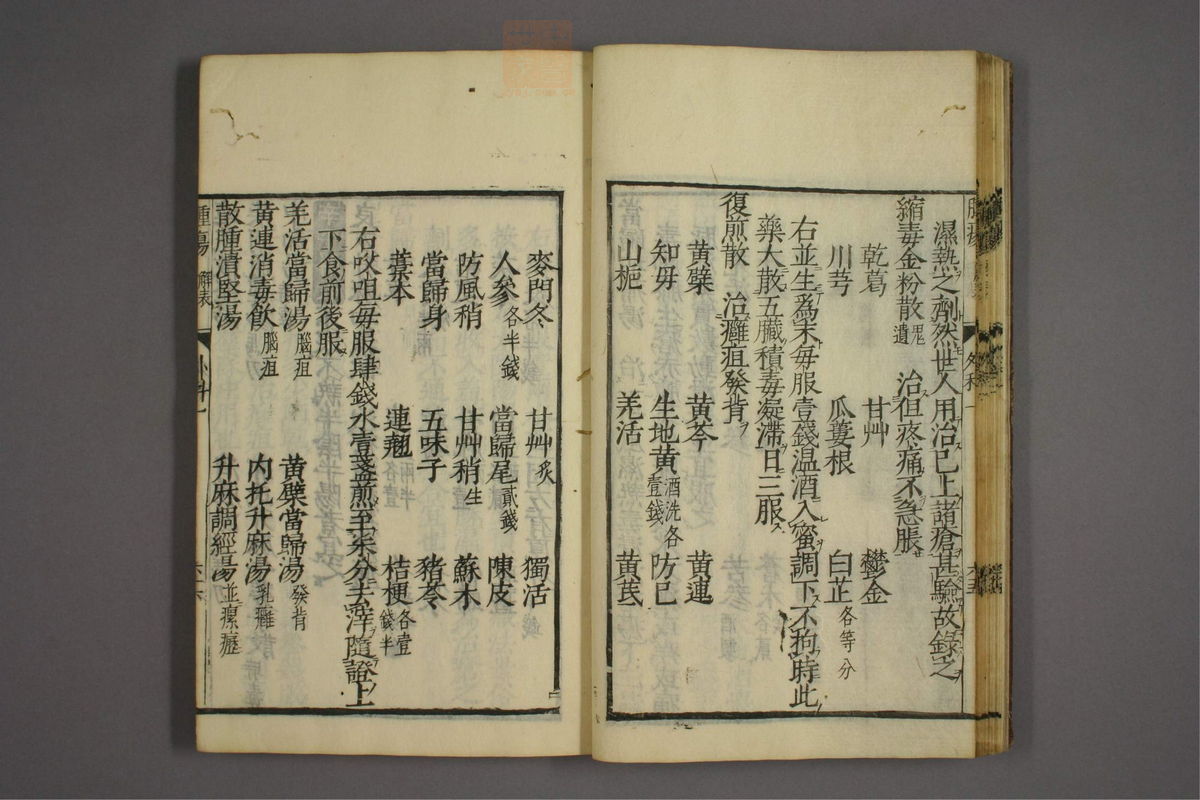 濕熱之劑然世人用治已上諸瘡甚驗故錄之
縮毒金粉散 鬼遺 治但疼痛不急脹
乾葛 甘艸 鬱金
川芎 瓜蔞根 白芷各等分
右並生為末每服壹錢温酒入蜜調下不拘時此
藥大散五臟積毒凝滯日三服
復煎散 治癰疽發背
黃蘗 黃芩 黃連
知母 生地黃酒洗各壹錢 防已
山梔 羌活 黃芪
麥門冬 甘艸炙 獨活
人參各半錢 當歸尾貳錢 陳皮
防風稍 甘艸稍生 蘇木
當歸身 五味子 豬苓
藁本 連翹 桔梗各壹錢半
右㕮咀每服肆錢水壹盞煎至柒分去滓隨證上
下食前後服
羌活當歸湯腦疽 黃蘗當歸湯發背
黃連消毒飲腦疽 内托升麻湯乳癰
散腫潰堅湯 升麻調經湯並瘰癧
腫瘍 解表 外科一